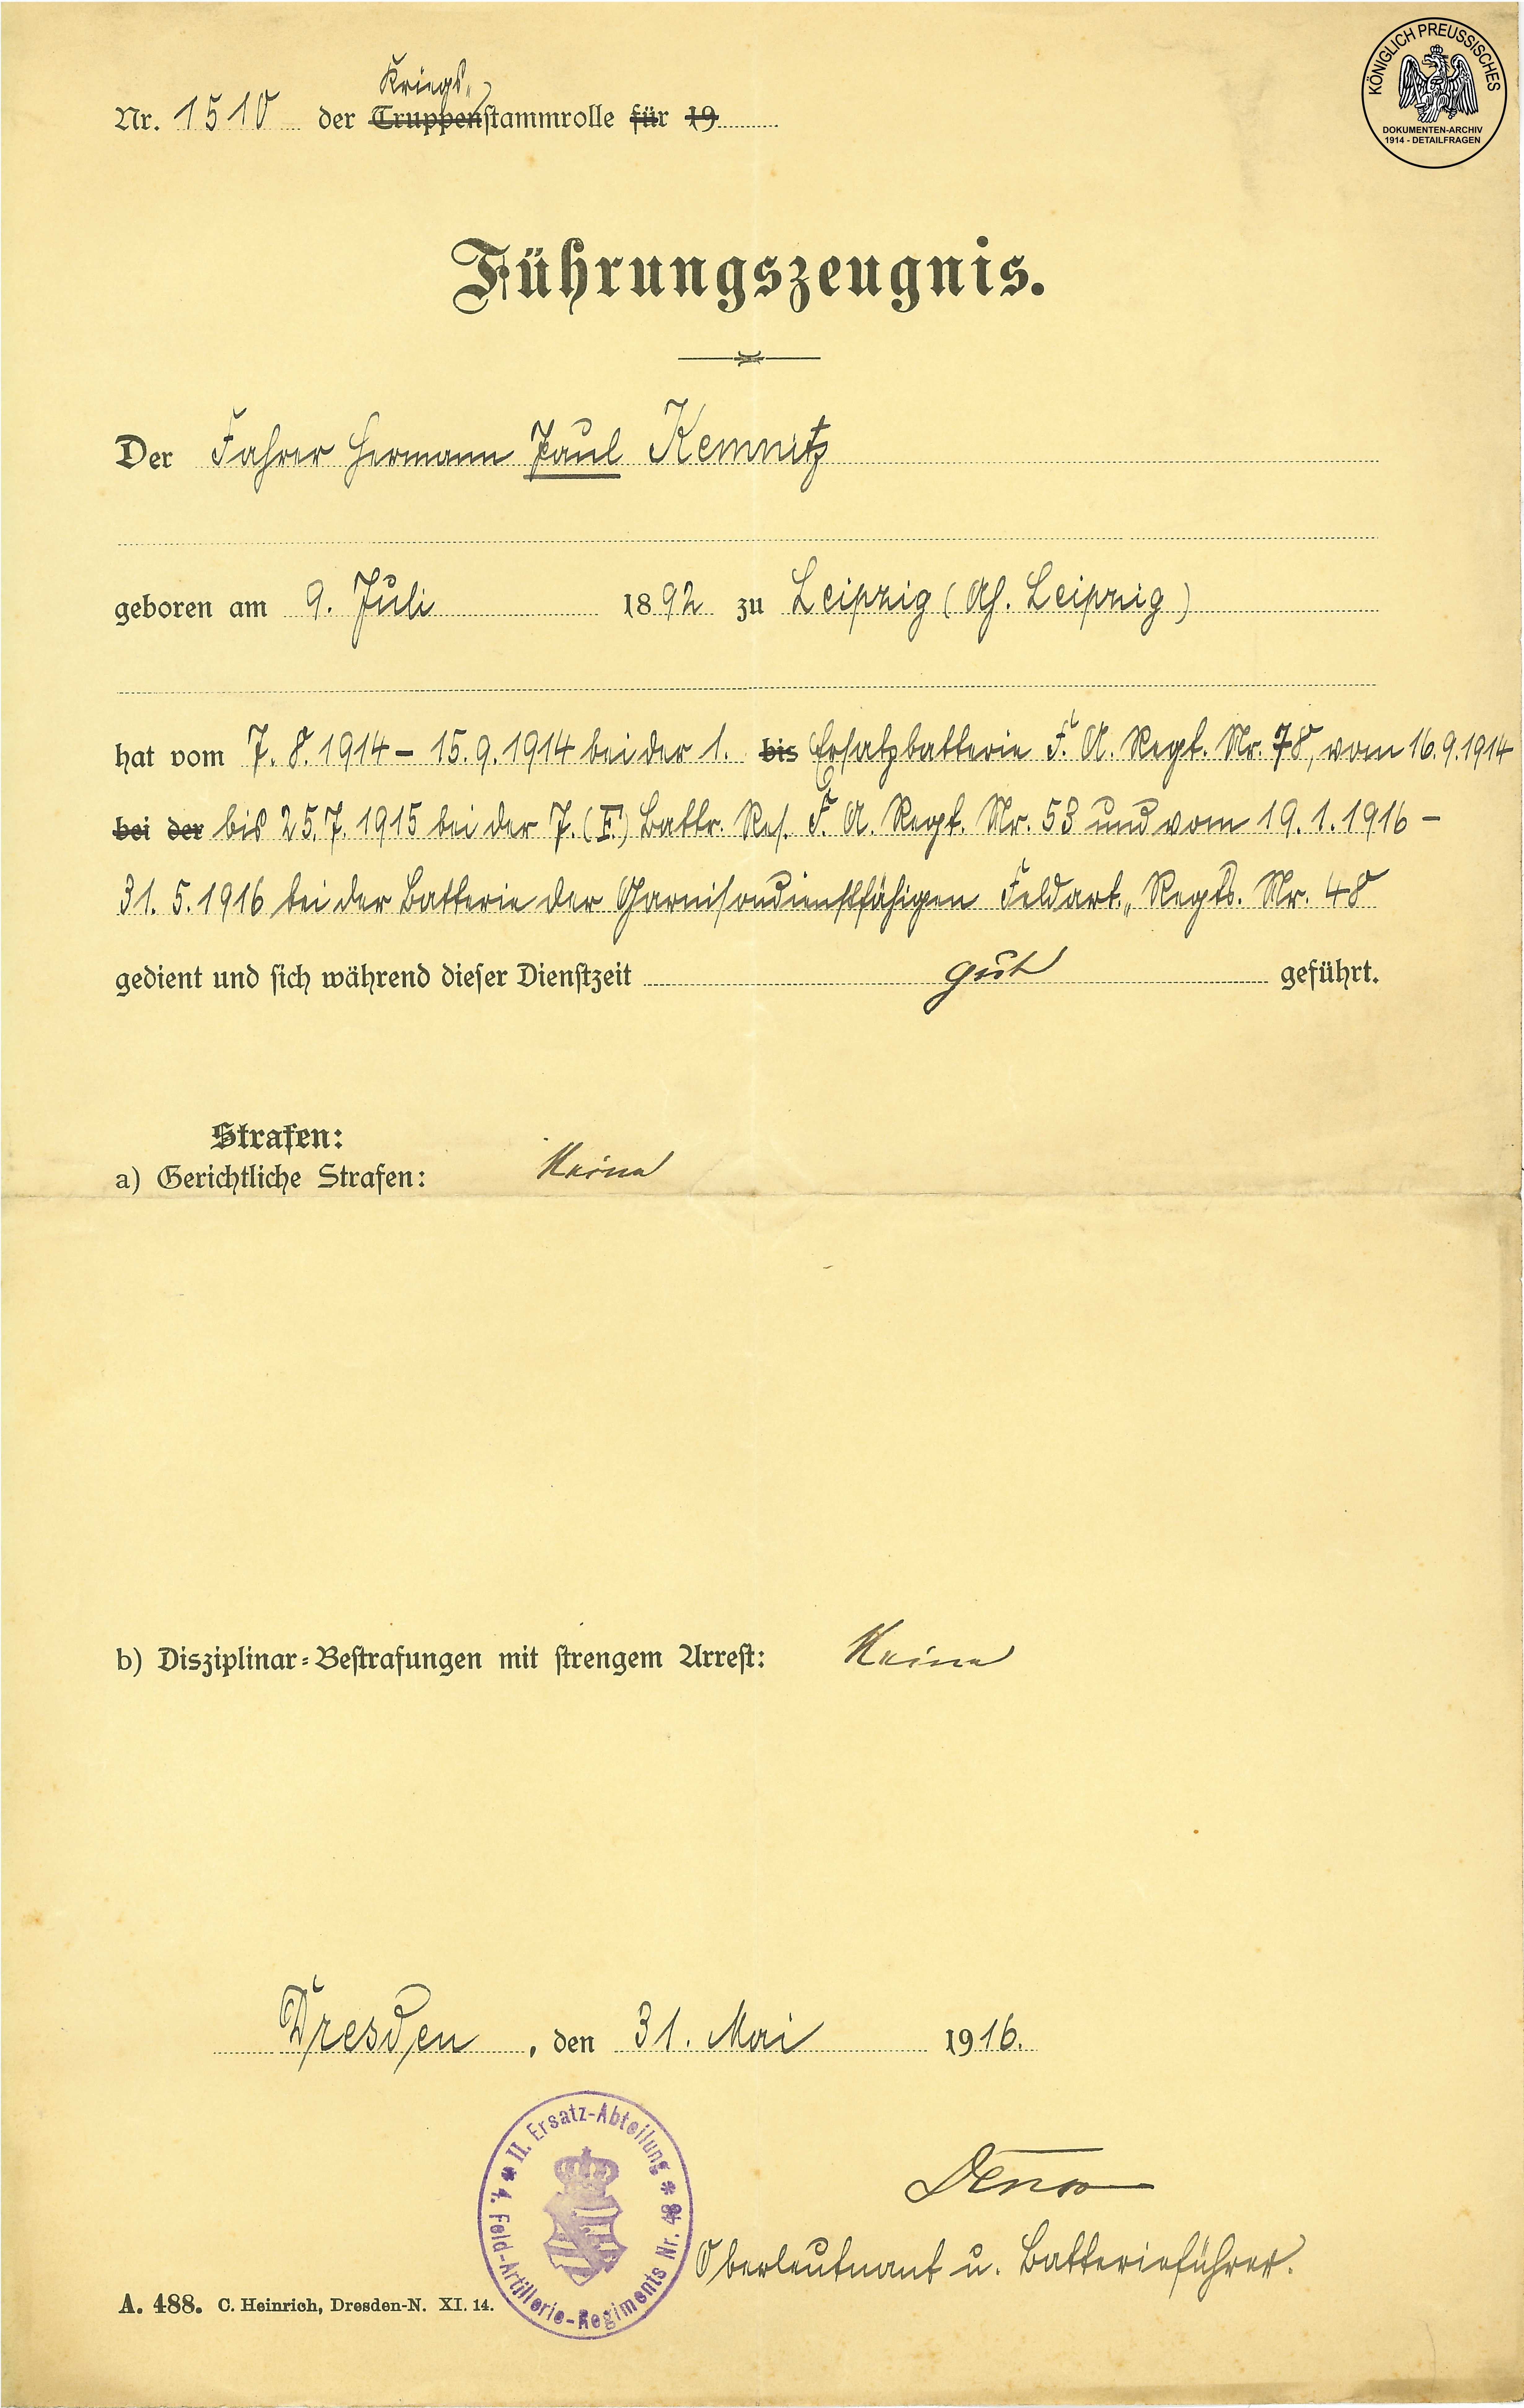 KÖNIGLICH PREUSSISCHES
DOKUMENTEN-ARCHIV
1914 - DETAILFRAGEN
Kriegs-
Nr. 1510 der Truppenstammrolle für 19
Führungszeugnis.
Der Fahrer Hermann Paul Kemnitz
geboren am 9. Juli 1892 zu Leipzig (Ah. Leipzig)
hat vom 7. 8. 1914 – 15. 9. 1914 bei der 1. bis Ersatzbatterie F. A. Regt. Nr. 78, vom 16. 9. 1914
bei der bis 25. 7. 1915 bei der 7. (F.) Battr. Res. F. A. Regt. Nr. 53 und vom 19. 1. 1916 –
31. 5. 1916 bei der Batterie der Garnisondienstfähigen Feldart. Regts. Nr. 48
gedient und sich während dieser Dienstzeit gut geführt.
Strafen:
a) Gerichtliche Strafen: Keine
b) Disziplinar-Bestrafungen mit strengem Arrest: Keine
Dresden, den 31. Mai 1916.
II. Ersatz-Abteilung
4. Feld-Artillerie-Regiments Nr. 48
Oberleutnant u. Batterieführer.
A. 488. C. Heinrich, Dresden-N. XI. 14.